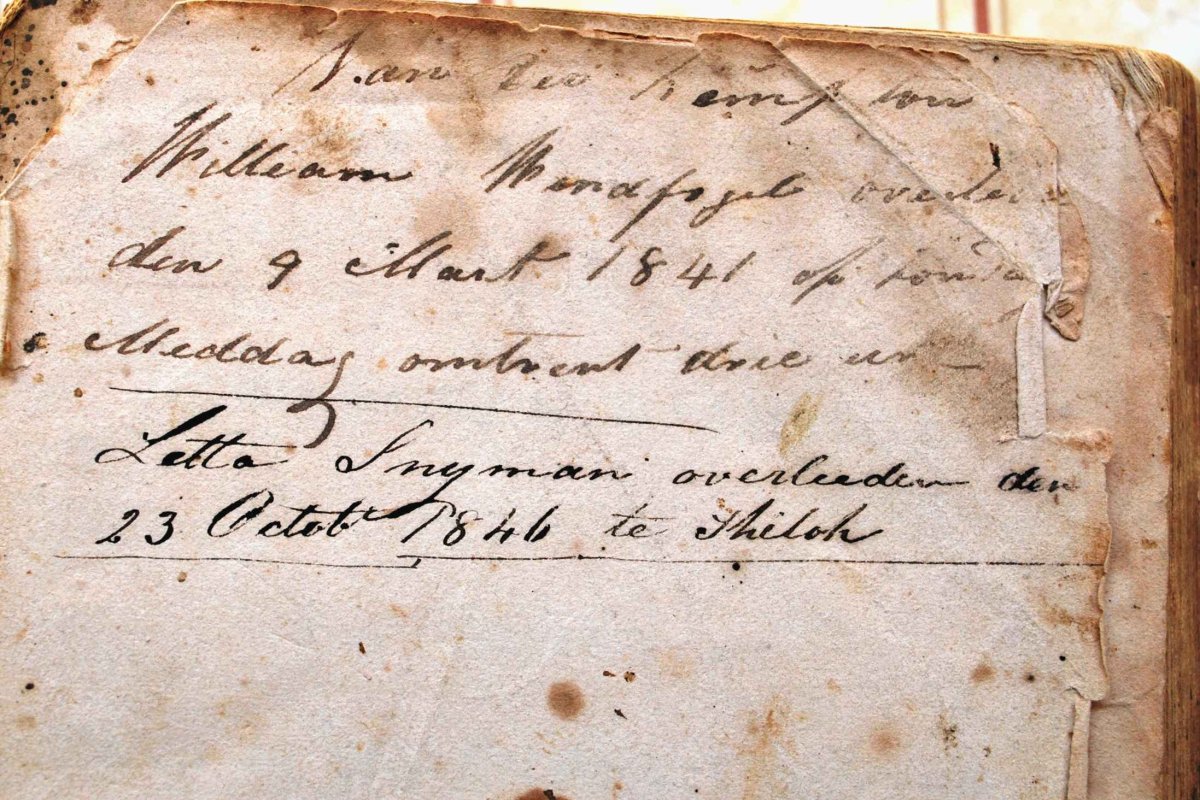 Van der Kemp
William Windfogel overlede
den 9 Mart 1841 op
Meddag omtrent drie
Letta Snyman overleeden den
23 Octobr 1846 te Shiloh